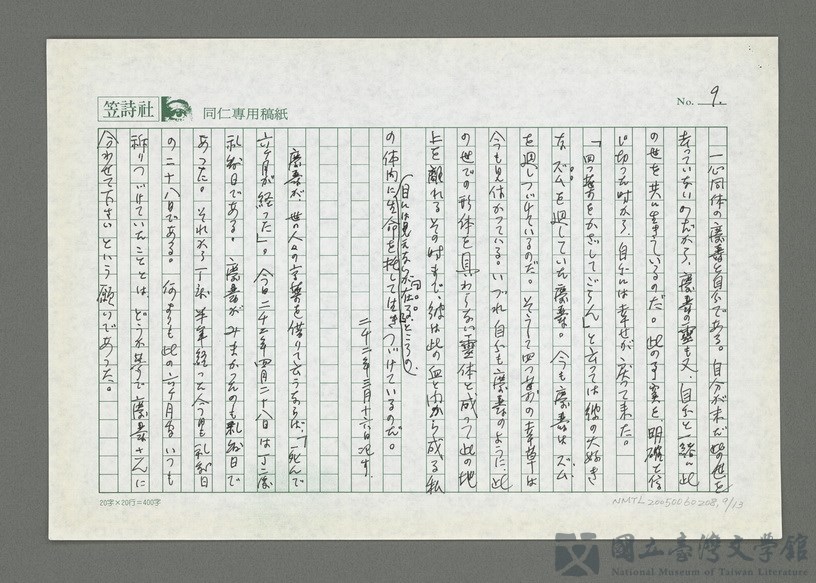 No. 9.
笠詩社
同仁專用稿紙
一心同体の慶壽と自分である。自分が未だ此の世を
去っていないのだから、慶壽の靈も又、自分と一緒に此
の世を共に生きているのだ。此の事実を、明確に信
じ切った時から、自分には幸せが戻って来た。
「四つ葉をかざしてごらん」と云っては彼の大好き
な ズームを廻していた慶壽。今も慶壽は ズーム
を廻しつづけているのだ。そうして四つ葉の幸草は
今も見付かっている。いづれ 自分も慶壽のように、此
の世での形体を具わらない靈体と成って此の地
上を離れるその時まで、彼は此の血と肉から成る私
の体内に生命を托して生きつづけているのだ。
(自分には見えないが在る、ところの)
二十二年三月十六日 記す。
慶壽が、世の人々の言葉を借りて云うならば、「死んで
六ヶ月が経った」。今日二十二年四月二十八日は丁度
礼拜日である。慶壽がみまかったのも礼拜日で
あった。それから丁度半年経った今日も礼拜日
の二十八日である。何よりも此の六ヶ月もいつも
祈りつづけていたことは、どうか早く慶壽さんに
会わせて下さいという願いであった。
20字×20行=400字
NMTL20050060208, 9/13
國立臺灣文學館
National Museum of Taiwan Literature